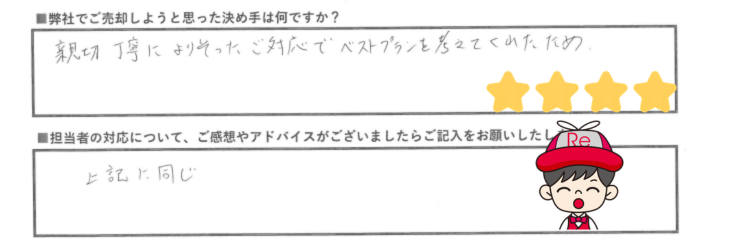 ■弊社でご売却しようと思った決め手は何ですか？
親切丁寧によりそったご対応でベストプランを考えてくれたため.
■担当者の対応について、ご感想やアドバイスがございましたらご記入をお願いしたし
Re
上記に同じ